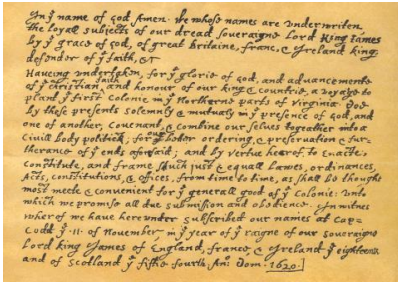 In yͤ name of god Amen. We whose names are underwriten,
the loyall subjects of our dread soveraigne Lord King James
by yͤ grace of god, of great Britaine, franc, & Ireland king,
defender of yͤ faith, &c
Haveing undertaken, for yͤ glorie of god, and advancemente
of yͤ christian faith and honour of our king & countrie, a voyage to
plant yͤ first colonie in yͤ Northerne parts of Virginia. Doe
by these presents solemnly & mutualy in yͤ presence of god, and
one of another, covenant, & combine our selves togeather into a
Civill body politick; for our better ordering, & preservation & fur-
therance of yͤ ends aforesaid; and by vertue hearof, to enacte,
constitute, and frame shuch just & equall Lawes, ordinances,
Acts, constitutions, & offices, from time to time, as shall be thought
most meete & convenient for yͤ generall good of yͤ colonie: unto
which we promise all due submission and obedience. In witnes
wherof we have hereunder subscribed our names at Cap-
Codd yͤ ·11· of November in yͤ year of yͤ raigne of our soveraigne
Lord king James of England, france, & Ireland yͤ eighteenth
and of Scotland yͤ fiftie fourth. Anͦ: Dom. 1620.]